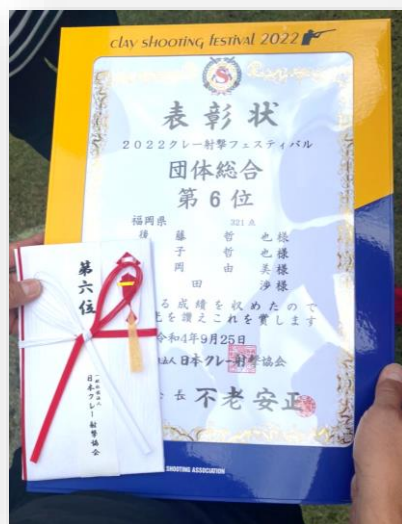 CLAY SHOOTING FESTIVAL 2022
S
表彰状
2022クレー射撃フェスティバル
団体総合
第6位
福岡県 321点
後藤哲也様
子哲也様
岡由美様
田沙様
る成績を収めたので
を讃えこれを賞します
令和4年9月25日
法人日本クレー射撃協会
長 不老安正
第六位
一般社団法人
日本クレー射撃協会
SHOOTING ASSOCIATION